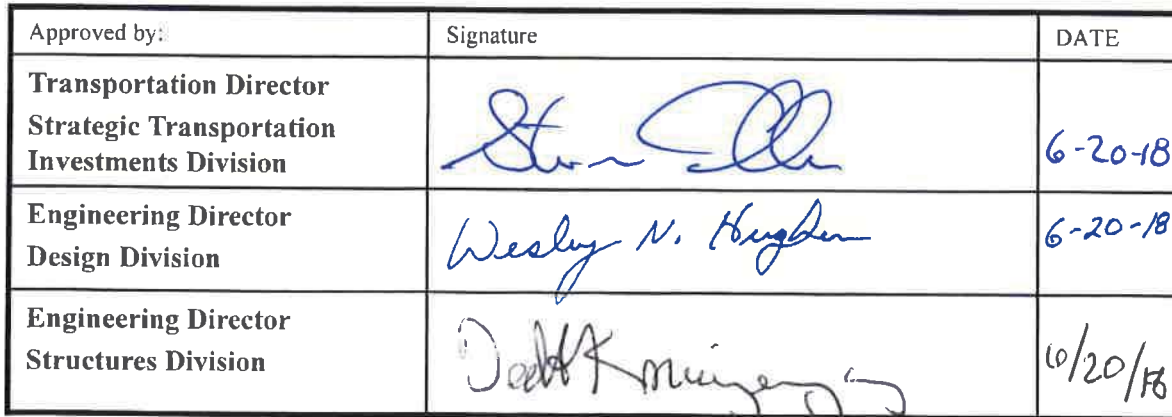 Approved by: Signature DATE
Transportation Director
Strategic Transportation
Investments Division 6-20-18
Engineering Director
Design Division Wesley N. Hughen 6-20-18
Engineering Director
Structures Division 6/20/18